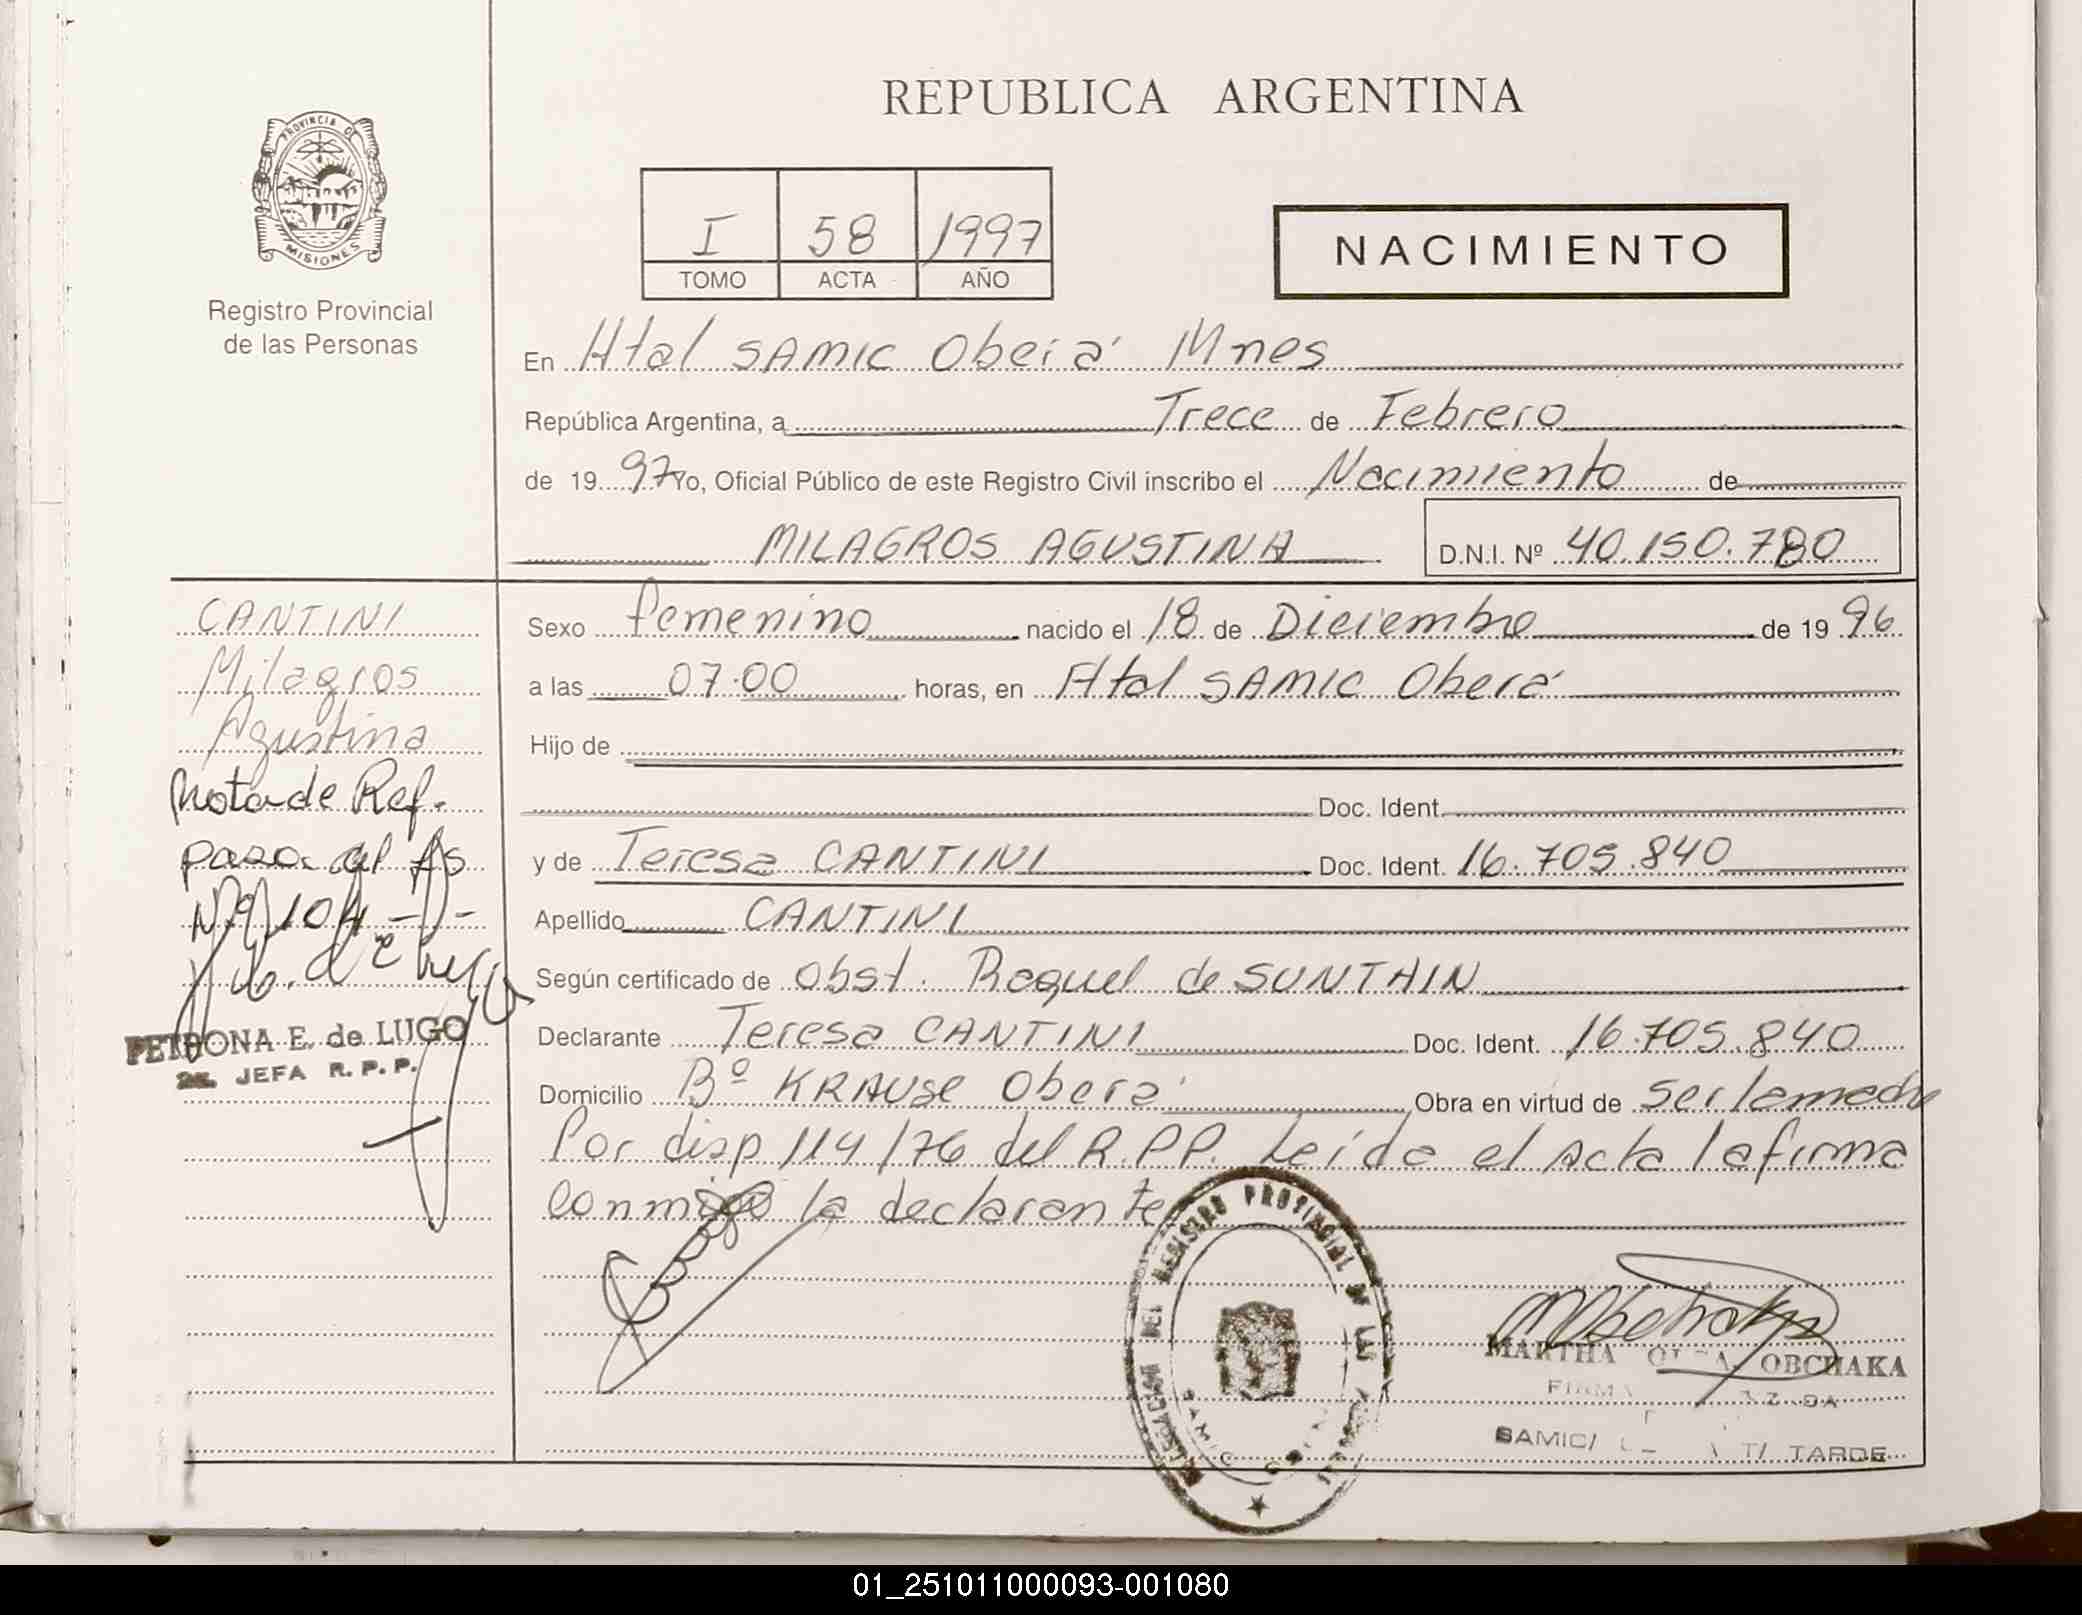 REPUBLICA ARGENTINA
PROVINCIA DE
MISIONES
Registro Provincial
de las Personas
I 58 1997
TOMO ACTA AÑO
NACIMIENTO
En Htal SAMIC Oberá Mnes
República Argentina, a Trece de Febrero
de 19 97 Yo, Oficial Público de este Registro Civil inscribo el Nacimiento de
MILAGROS AGUSTINA D.N.I. Nº 40.150.780
CANTINI
Milagros
Agustina
Nota de Ref.
pasa al fs
Nº 104 - -
PETRONA E. de LUGO
2a. JEFA R. P. P.
Sexo femenino nacido el 18 de Diciembre de 19 96
a las 07.00 horas, en Htal SAMIC Oberá
Hijo de
Doc. Ident.
y de Teresa CANTINI Doc. Ident. 16.705.840
Apellido CANTINI
Según certificado de Obst. Raquel de SUNTHIN
Declarante Teresa CANTINI Doc. Ident. 16.705.840
Domicilio Bº KRAUSE Oberá Obra en virtud de ser la madre
Por disp 114/76 del R.P.P. Leída el Acta la firma
conmigo la declarante
DELEGACION DEL REGISTRO PROVINCIAL DE LAS PERSONAS
SAMIC OBERA
MARTHA OLGA OBCHAKA
FIRMA
SAMIC/ T/ TARDE
01_251011000093-001080